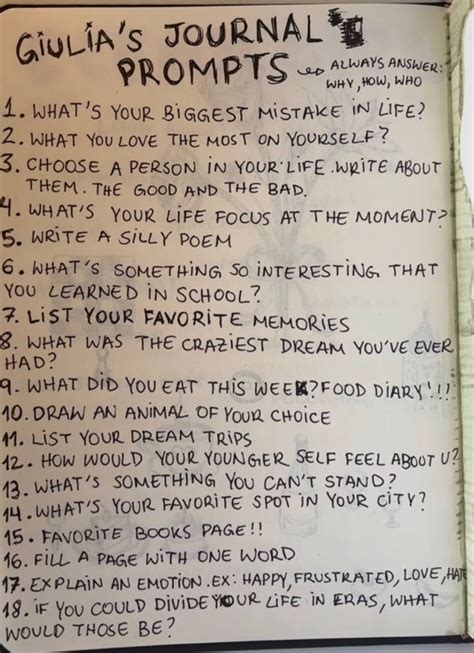 GIULIA'S JOURNAL
PROMPTS
ALWAYS ANSWER:
WHY, HOW, WHO
1. WHAT'S YOUR BIGGEST MISTAKE IN LIFE?
2. WHAT YOU LOVE THE MOST ON YOURSELF?
3. CHOOSE A PERSON IN YOUR LIFE. WRITE ABOUT
THEM. THE GOOD AND THE BAD.
4. WHAT'S YOUR LIFE FOCUS AT THE MOMENT?
5. WRITE A SILLY POEM
6. WHAT'S SOMETHING SO INTERESTING THAT
YOU LEARNED IN SCHOOL?
7. LIST YOUR FAVORITE MEMORIES
8. WHAT WAS THE CRAZIEST DREAM YOU'VE EVER
HAD?
9. WHAT DID YOU EAT THIS WEEK? FOOD DIARY!!!
10. DRAW AN ANIMAL OF YOUR CHOICE
11. LIST YOUR DREAM TRIPS
12. HOW WOULD YOUR YOUNGER SELF FEEL ABOUT U?
13. WHAT'S SOMETHING YOU CAN'T STAND?
14. WHAT'S YOUR FAVORITE SPOT IN YOUR CITY?
15. FAVORITE BOOKS PAGE!!
16. FILL A PAGE WITH ONE WORD
17. EXPLAIN AN EMOTION. EX: HAPPY, FRUSTRATED, LOVE, HATE
18. IF YOU COULD DIVIDE YOUR LIFE IN ERAS, WHAT
WOULD THOSE BE?